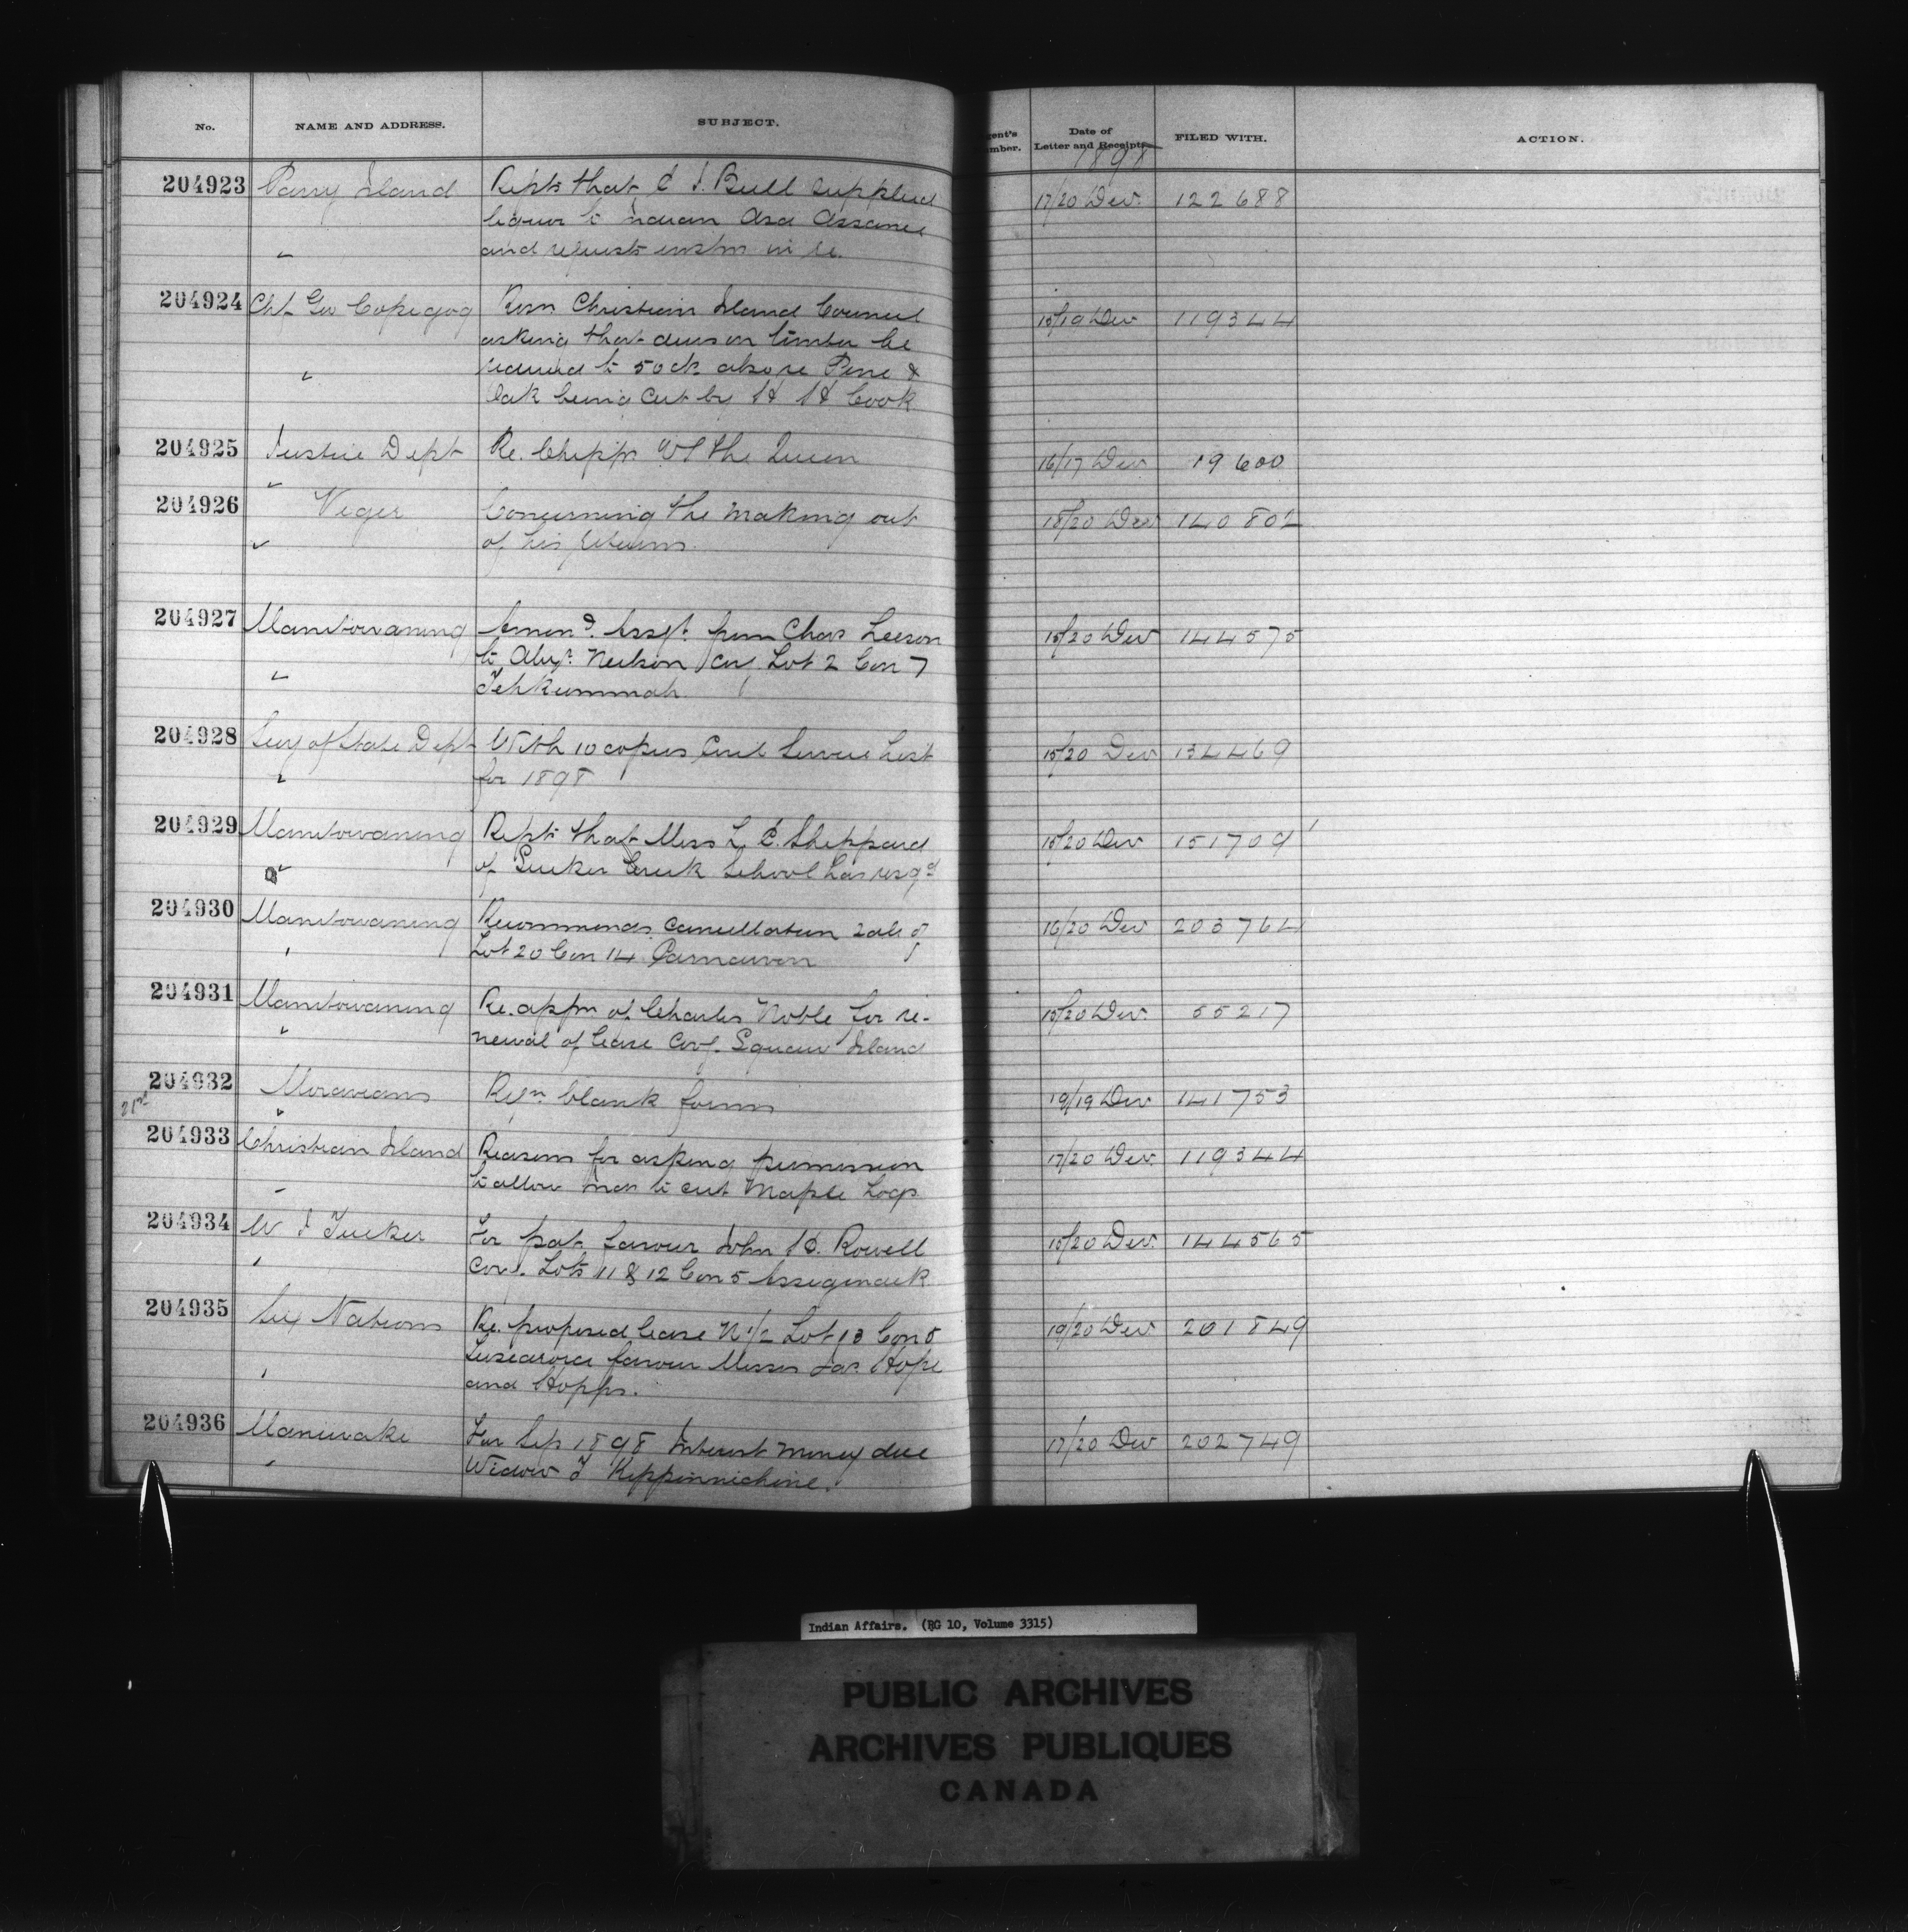 No. NAME AND ADDRESS. SUBJECT. gent's mber. Date of Letter and Receipts FILED WITH. ACTION.
1898
204923 Parry Island Repts that C J. Bull supplied 17/20 Dec. 122688
liquor to Indian Asa Assance
and requests instns in re.
204924 Chf. Geo Copegog Resn Christian Island Council 15/19 Dec 119344
asking that dues on timber be
reduced to 50 also re Pine &
Oak being cut by H H Cook
204925 Justice Dept Re. Chipps vs the Queen 16/17 Dec 19600
204926 Viger Concerning the making out 18/20 Dec 140802
of his returns.
204927 Manitowaning Amend. Assgt. from Chas Leeson 15/20 Dec 144575
to Alexr. Neilson cov. Lot 2 Con 7
Tehkummah.
204928 Secy of State Dept With 10 copies Civil Service List 15/20 Dec 134469
for 1898
204929 Manitowaning Repts that Miss L. C. Sheppard 15/20 Dec 151709
of Sucker Creek School has resgd
204930 Manitowaning Recommends cancellation sale of 16/20 Dec 203764
Lot 20 Con 14 Carnarvon
204931 Manitowaning Re. appn of Charles Noble for re- 15/20 Dec. 55217
newal of lease Covg. Squaw Island
204932 Moravians Reqn. blank forms 19/19 Dec 141753
21st
204933 Christian Island Reasons for asking permission 17/20 Dec. 119344
to allow Inds to cut Maple Logs
204934 W J Tucker For pat. favour John H. Rowell 15/20 Dec. 144565
Cov. Lots 11 & 12 Con 5 Assiginack
204935 Six Nations Re. proposed lease N 1/2 Lot 13 Con 5 19/20 Dec 201849
Tuscarora favour Messrs Jas. Hope
and Hopps.
204936 Maniwaki For Sep 1898 Interest money due 17/20 Dec 202749
Widow J Keppinnichine.
Indian Affairs. (RG 10, Volume 3315)
PUBLIC ARCHIVES
ARCHIVES PUBLIQUES
CANADA